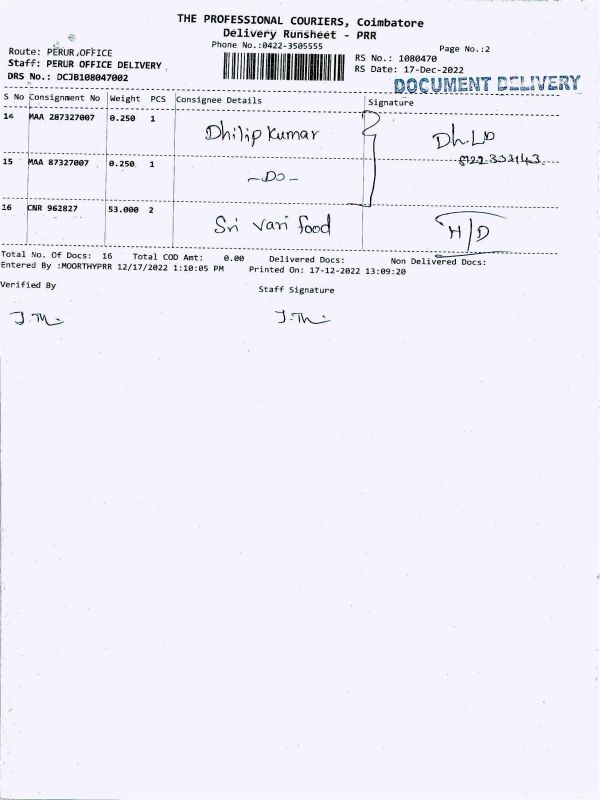 THE PROFESSIONAL COURIERS, Coimbatore
Delivery Runsheet - PRR
Phone No.:0422-3505555
Page No.:2
Route: PERUR OFFICE
Staff: PERUR OFFICE DELIVERY
DRS No.: DCJB108047002
RS No.: 1080470
RS Date: 17-Dec-2022
DOCUMENT DELIVERY
S No Consignment No Weight PCS Consignee Details Signature
14 MAA 287327007 0.250 1 Dhilip Kumar
15 MAA 87327007 0.250 1 -Do-
16 CNR 962827 53.000 2 Sri vari food H/D
Total No. Of Docs: 16 Total COD Amt: 0.00 Delivered Docs: Non Delivered Docs:
Entered By :MOORTHYPRR 12/17/2022 1:10:05 PM Printed On: 17-12-2022 13:09:20
Verified By Staff Signature